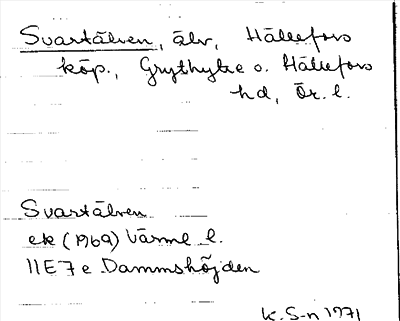 Svartälven, älv, Hällefors
köp., Grythytte o. Hällefors
hd, Ör. l.
Svartälven
ek (1969) Värml l.
11E7e Dammshöjden
K.S-n 1971